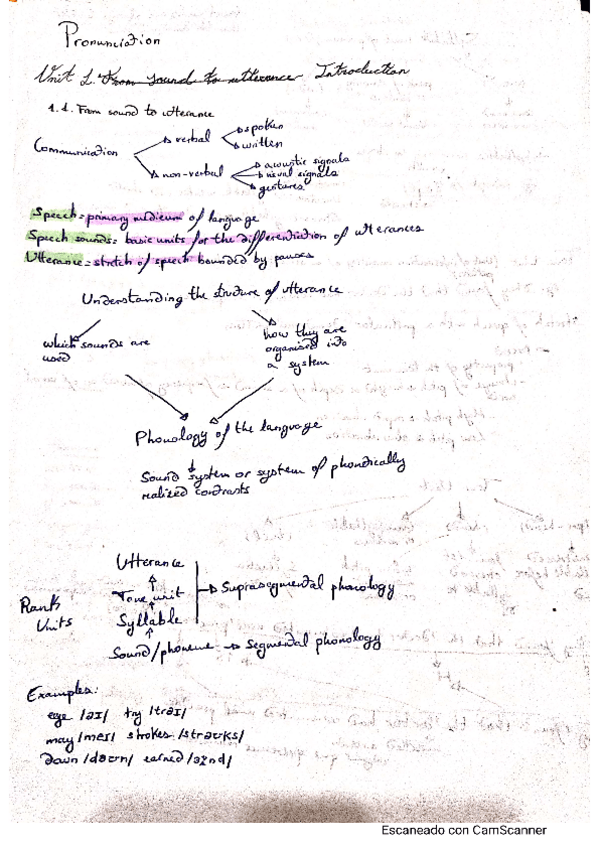 Pronunciation
Unit 1. From sound to utterance Introduction
1.1. From sound to utterance
Communication
verbal
spoken
written
non-verbal
acoustic signals
visual signals
gestures
Speech = primary medium of language
Speech sounds = basic units for the differentiation of utterances
Utterance = stretch of speech bounded by pauses
Understanding the structure of utterance
which sounds are used
how they are organised into a system
Phonology of the language
Sound system or system of phonetically realized contrasts
Rank Units
Utterance
Tone unit
Syllable
Suprasegmental phonology
Sound/phoneme → Segmental phonology
Examples:
eye /aɪ/ try /traɪ/
may /meɪ/ strokes /strəʊks/
down /daʊn/ earned /ɜːnd/
Escaneado con CamScanner